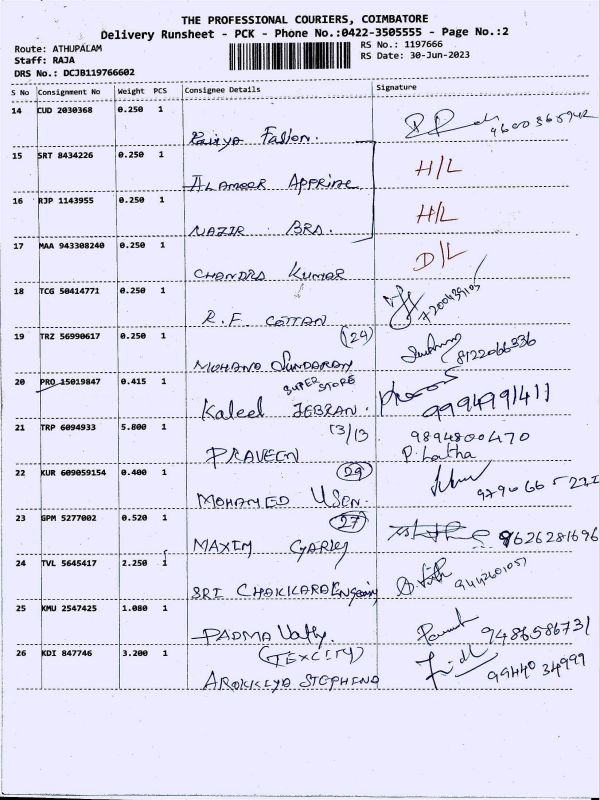 THE PROFESSIONAL COURIERS, COIMBATORE
Delivery Runsheet - PCK - Phone No.:0422-3505555 - Page No.:2
Route: ATHUPALAM
Staff: RAJA
DRS No.: DCJB119766602
RS No.: 1197666
RS Date: 30-Jun-2023
S No Consignment No Weight PCS Consignee Details Signature
14 CUD 2030368 0.250 1
Fashon.
15 SRT 8434226 0.250 1 H/L
16 RJP 1143955 0.250 1 H/L
NAZIR BRS.
17 MAA 943308240 0.250 1 D/L
CHANDRA KUMAR
18 TCG 50414771 0.250 1 7200439105
R.F. COTTAN
19 TRZ 56990617 0.250 1 (24) 8122066336
MOHANA SUNDARAN
20 PRO 15019847 0.415 1 SUPER STORE
Kaleel ZEBRAN. 9999991411
21 TRP 6094933 5.800 1 13/13 9894800470
PRAVEEN P. Latha
22 KUR 609059154 0.400 1 (29)
MOHAMED USEN.
23 GPM 5277002 0.520 1 (27) 9626281696
MAXIM
24 TVL 5645417 2.250 1
SRI CHAKKARA
25 KMU 2547425 1.080 1
PADMA 9486586731
26 KDI 847746 3.200 1 (TEXCITY)
AROKKIYA STEPHENA 99440 34999